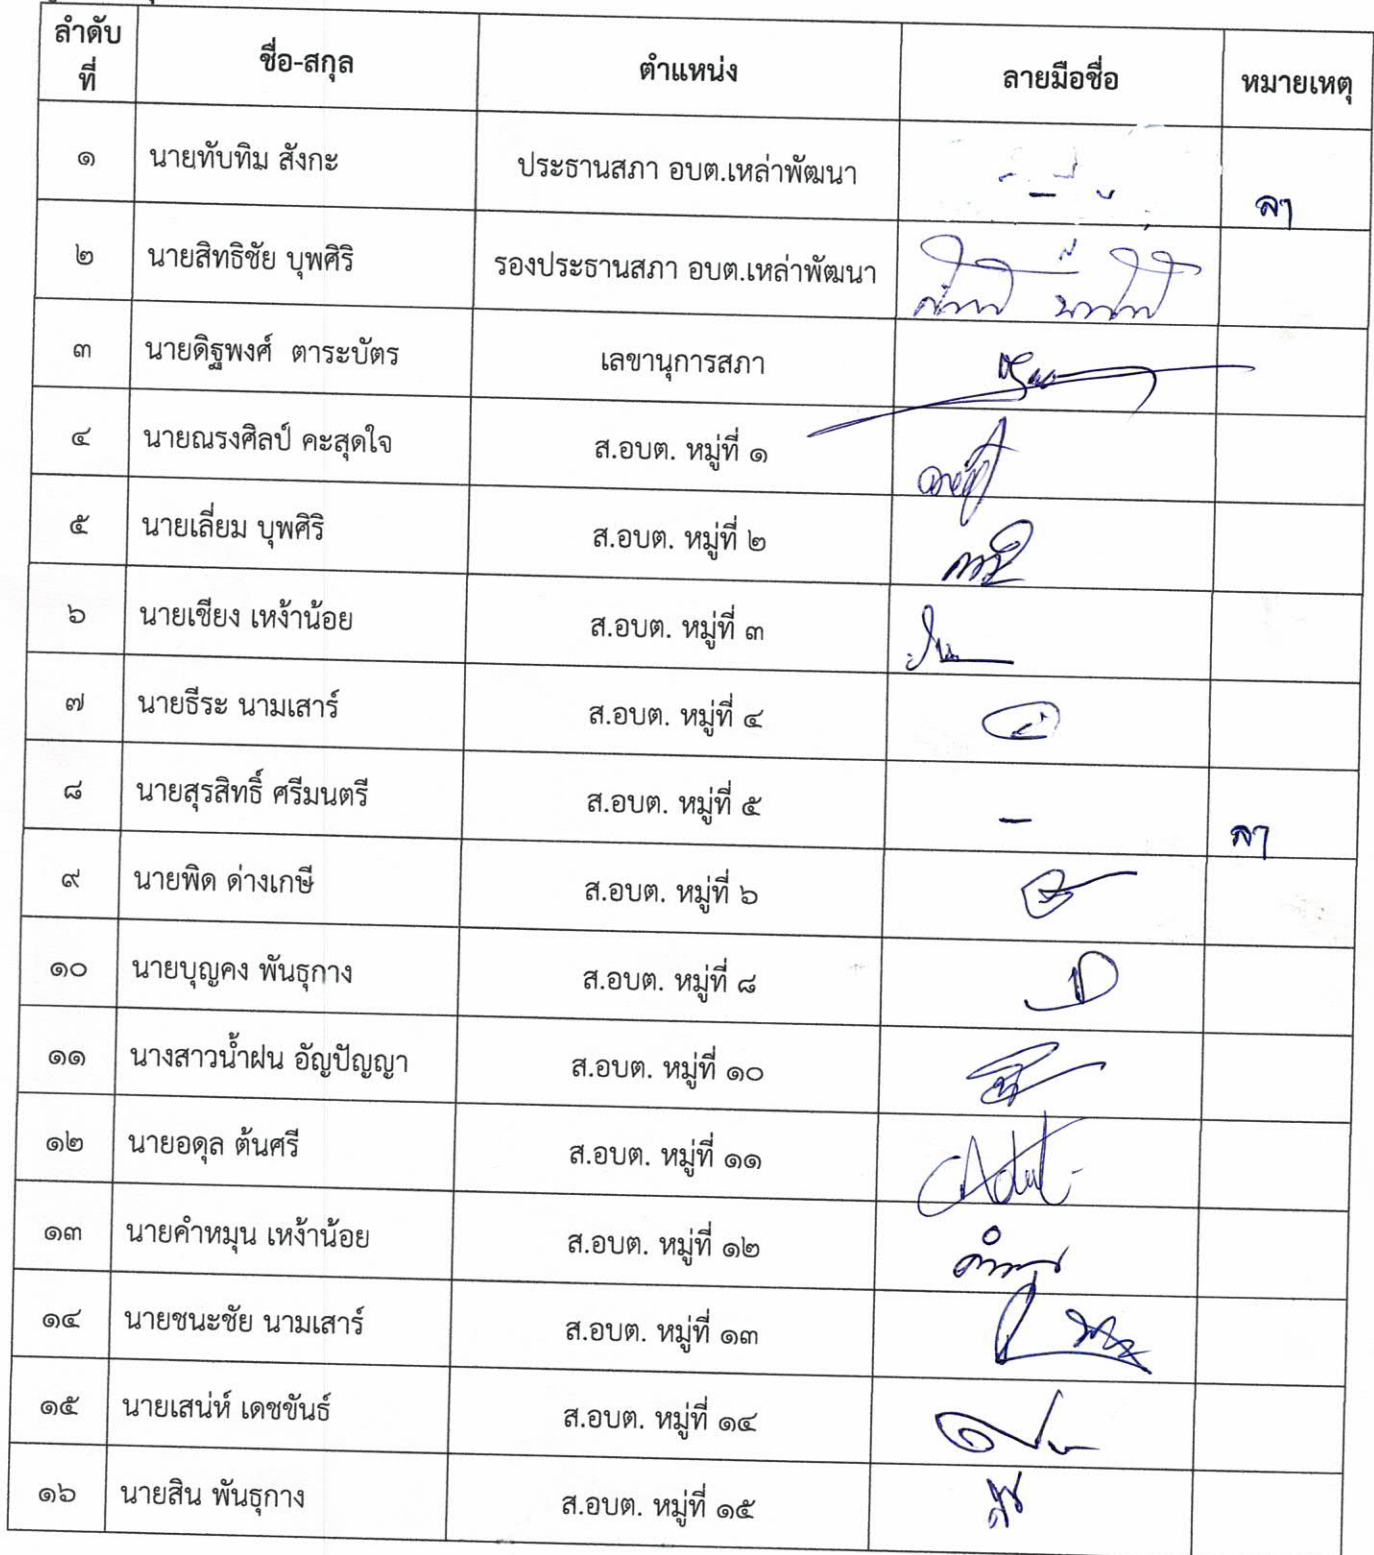 ลำดับ
ที่
ชื่อ-สกุล
ตำแหน่ง
ลายมือชื่อ
หมายเหตุ
๑ นายทับทิม สังกะ ประธานสภา อบต.เหล่าพัฒนา - ลา
๒ นายสิทธิชัย บุพศิริ รองประธานสภา อบต.เหล่าพัฒนา
๓ นายดิฐพงศ์ ตาระบัตร เลขานุการสภา
๔ นายณรงศิลป์ คะสุดใจ ส.อบต. หมู่ที่ ๑
๕ นายเลี่ยม บุพศิริ ส.อบต. หมู่ที่ ๒
๖ นายเชียง เหง้าน้อย ส.อบต. หมู่ที่ ๓
๗ นายธีระ นามเสาร์ ส.อบต. หมู่ที่ ๔
๘ นายสุรสิทธิ์ ศรีมนตรี ส.อบต. หมู่ที่ ๕ - ลา
๙ นายพิด ด่างเกษี ส.อบต. หมู่ที่ ๖
๑๐ นายบุญคง พันธุกาง ส.อบต. หมู่ที่ ๘
๑๑ นางสาวน้ำฝน อัญปัญญา ส.อบต. หมู่ที่ ๑๐
๑๒ นายอดุล ต้นศรี ส.อบต. หมู่ที่ ๑๑ Adul
๑๓ นายคำหมุน เหง้าน้อย ส.อบต. หมู่ที่ ๑๒
๑๔ นายชนะชัย นามเสาร์ ส.อบต. หมู่ที่ ๑๓
๑๕ นายเสน่ห์ เดชขันธ์ ส.อบต. หมู่ที่ ๑๔
๑๖ นายสิน พันธุกาง ส.อบต. หมู่ที่ ๑๕